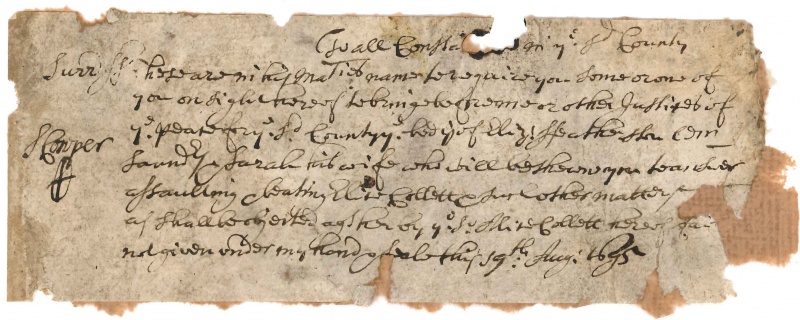 To all Consta in ye Sd County
Surr ss. these are in his Maties name to require you some or one of
you on sight hereof to bringe before me or other Justices of
ye peace for ye Sd County ye body of Eliz: Clem
& Sarah his wife who will be shewn you to answer
assaulting & beating Alice Collett & such other matters
as shall be objected agst her by ye Sd Alice Collett hereof fail
not given under my hand & seale this 19th Aug: 1695